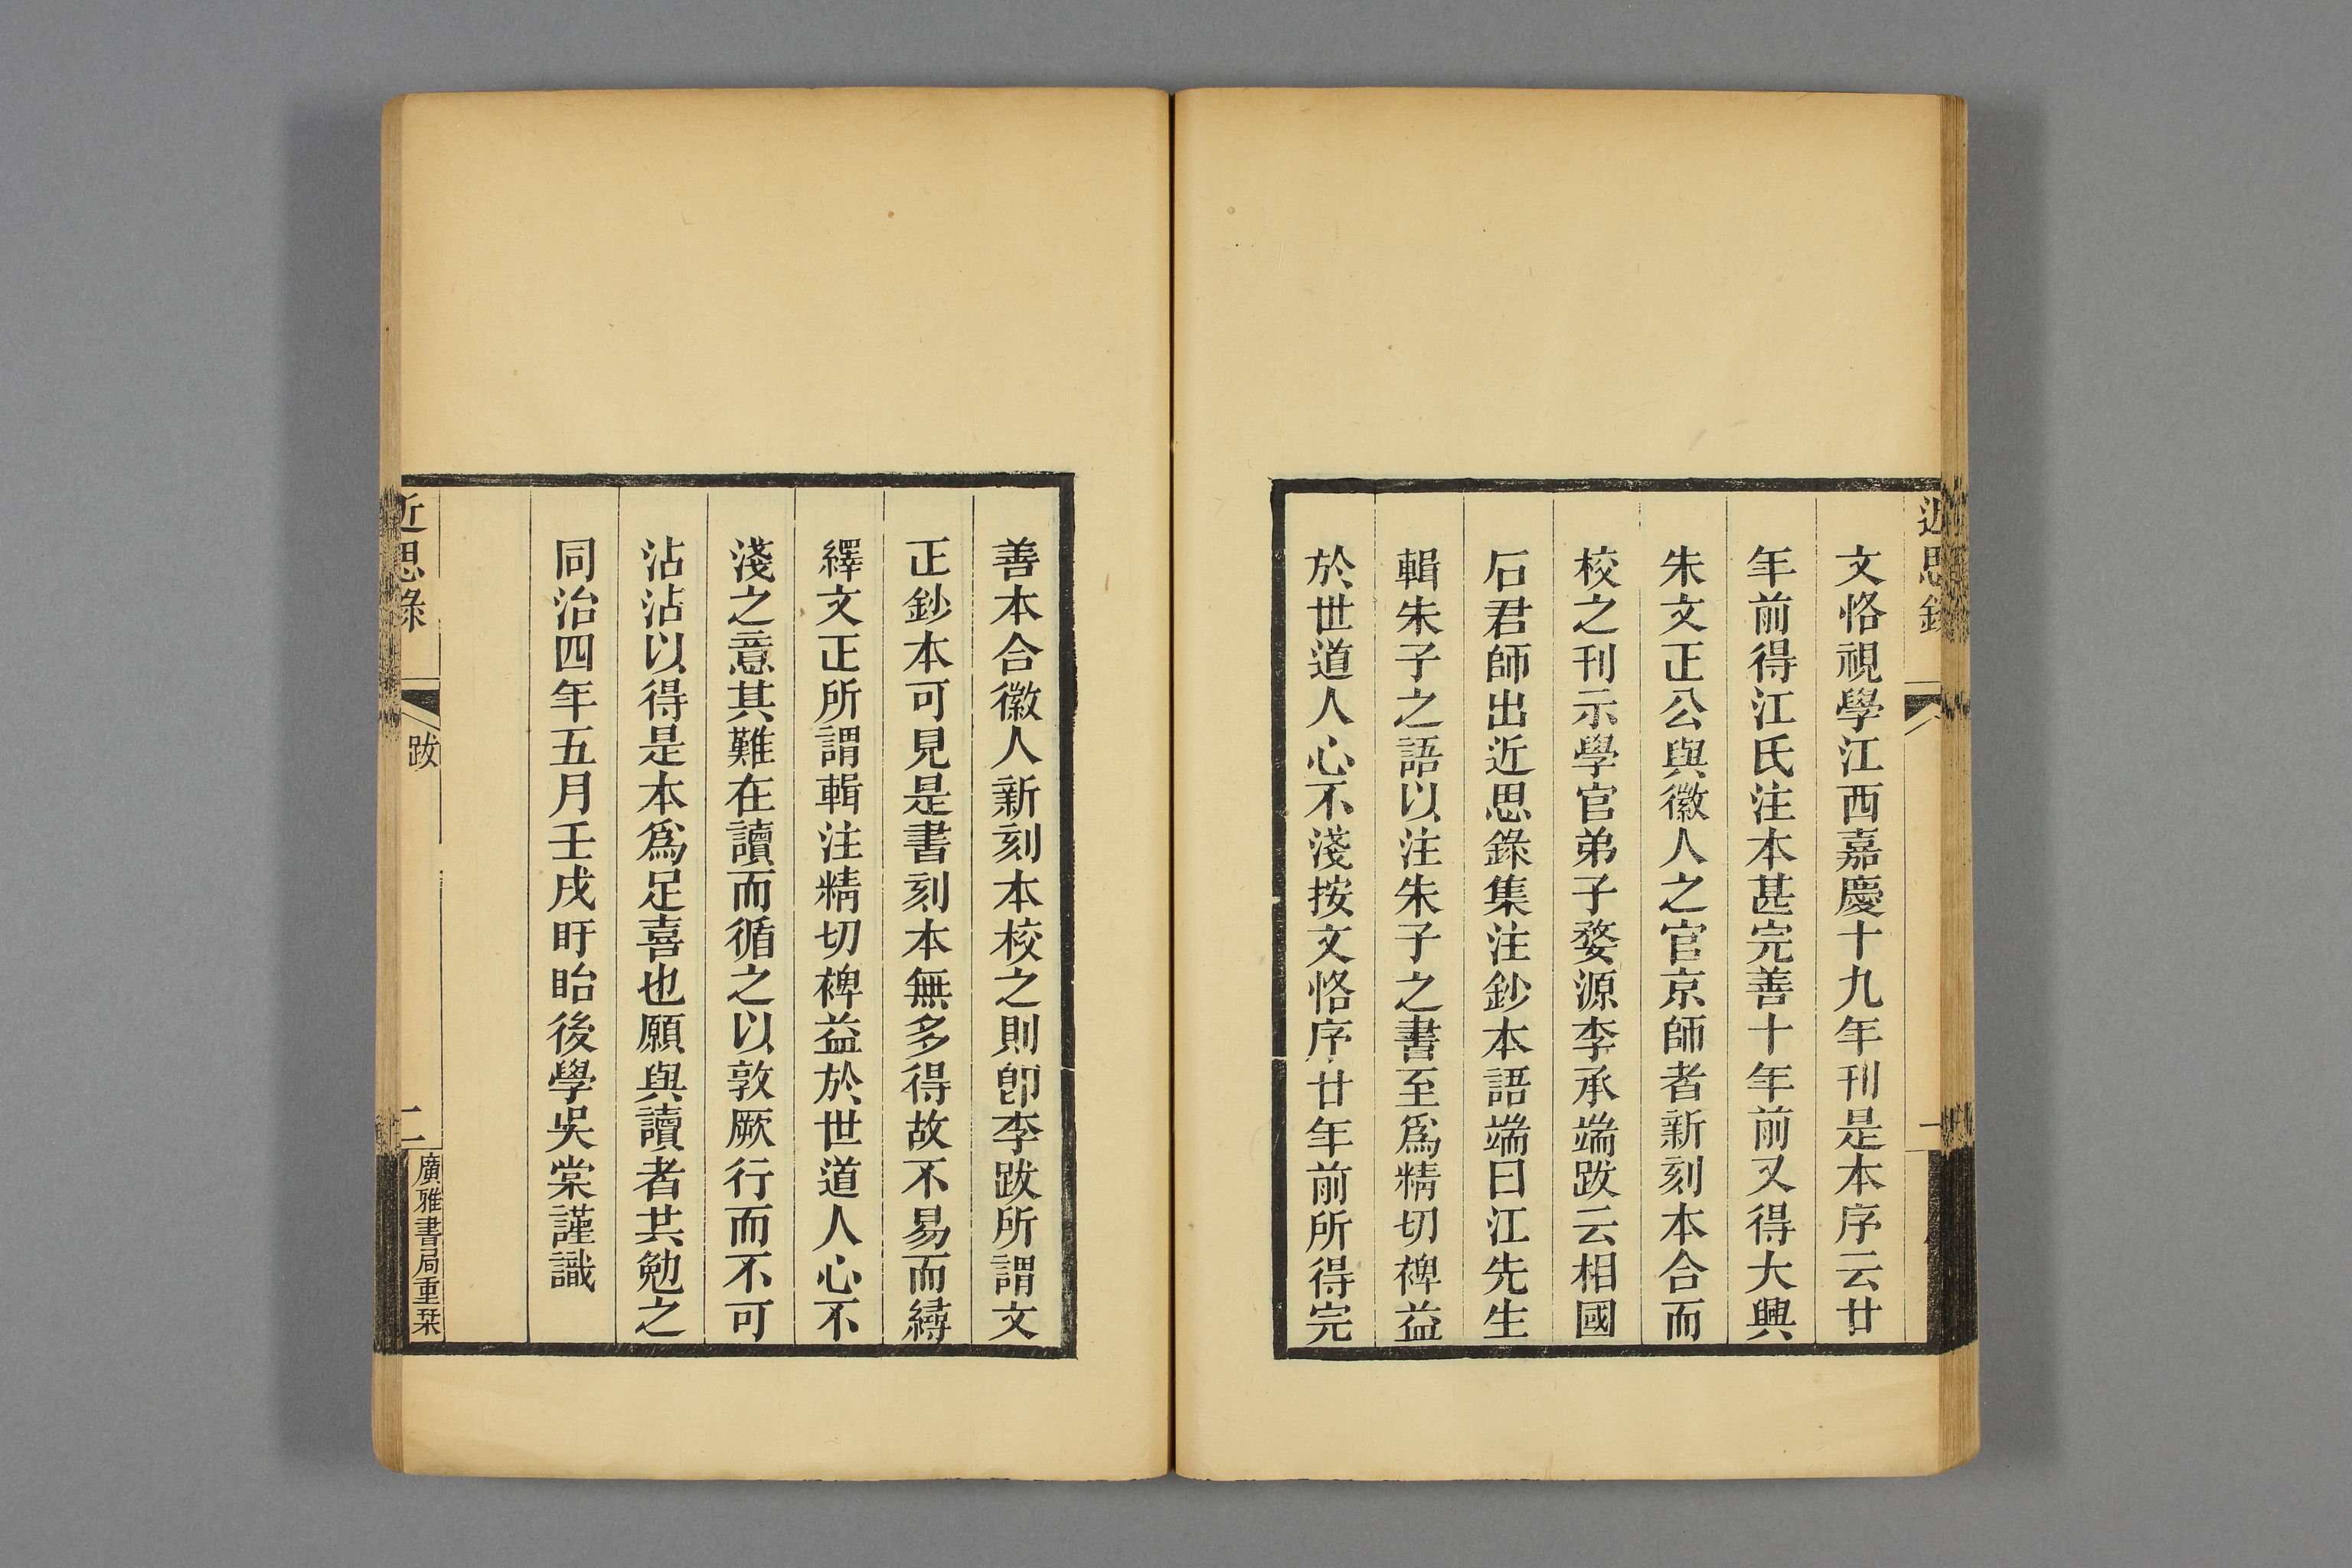 近思錄
一
文恪視學江西嘉慶十九年刊是本序云廿
年前得江氏注本甚完善十年前又得大興
朱文正公與徽人之官京師者新刻本合而
校之刊示學官弟子婺源李承端跋云相國
石君師出近思錄集注鈔本語端曰江先生
輯朱子之語以注朱子之書至爲精切裨益
於世道人心不淺按文恪序廿年前所得完
善本合徽人新刻本校之則卽李跋所謂文
正鈔本可見是書刻本無多得故不易而縛
繹文正所謂輯注精切裨益於世道人心不
淺之意其難在讀而循之以敦厥行而不可
沾沾以得是本爲足喜也願與讀者共勉之
同治四年五月壬戌盱眙後學吳棠謹識
近思錄
跋
二
廣雅書局重栞